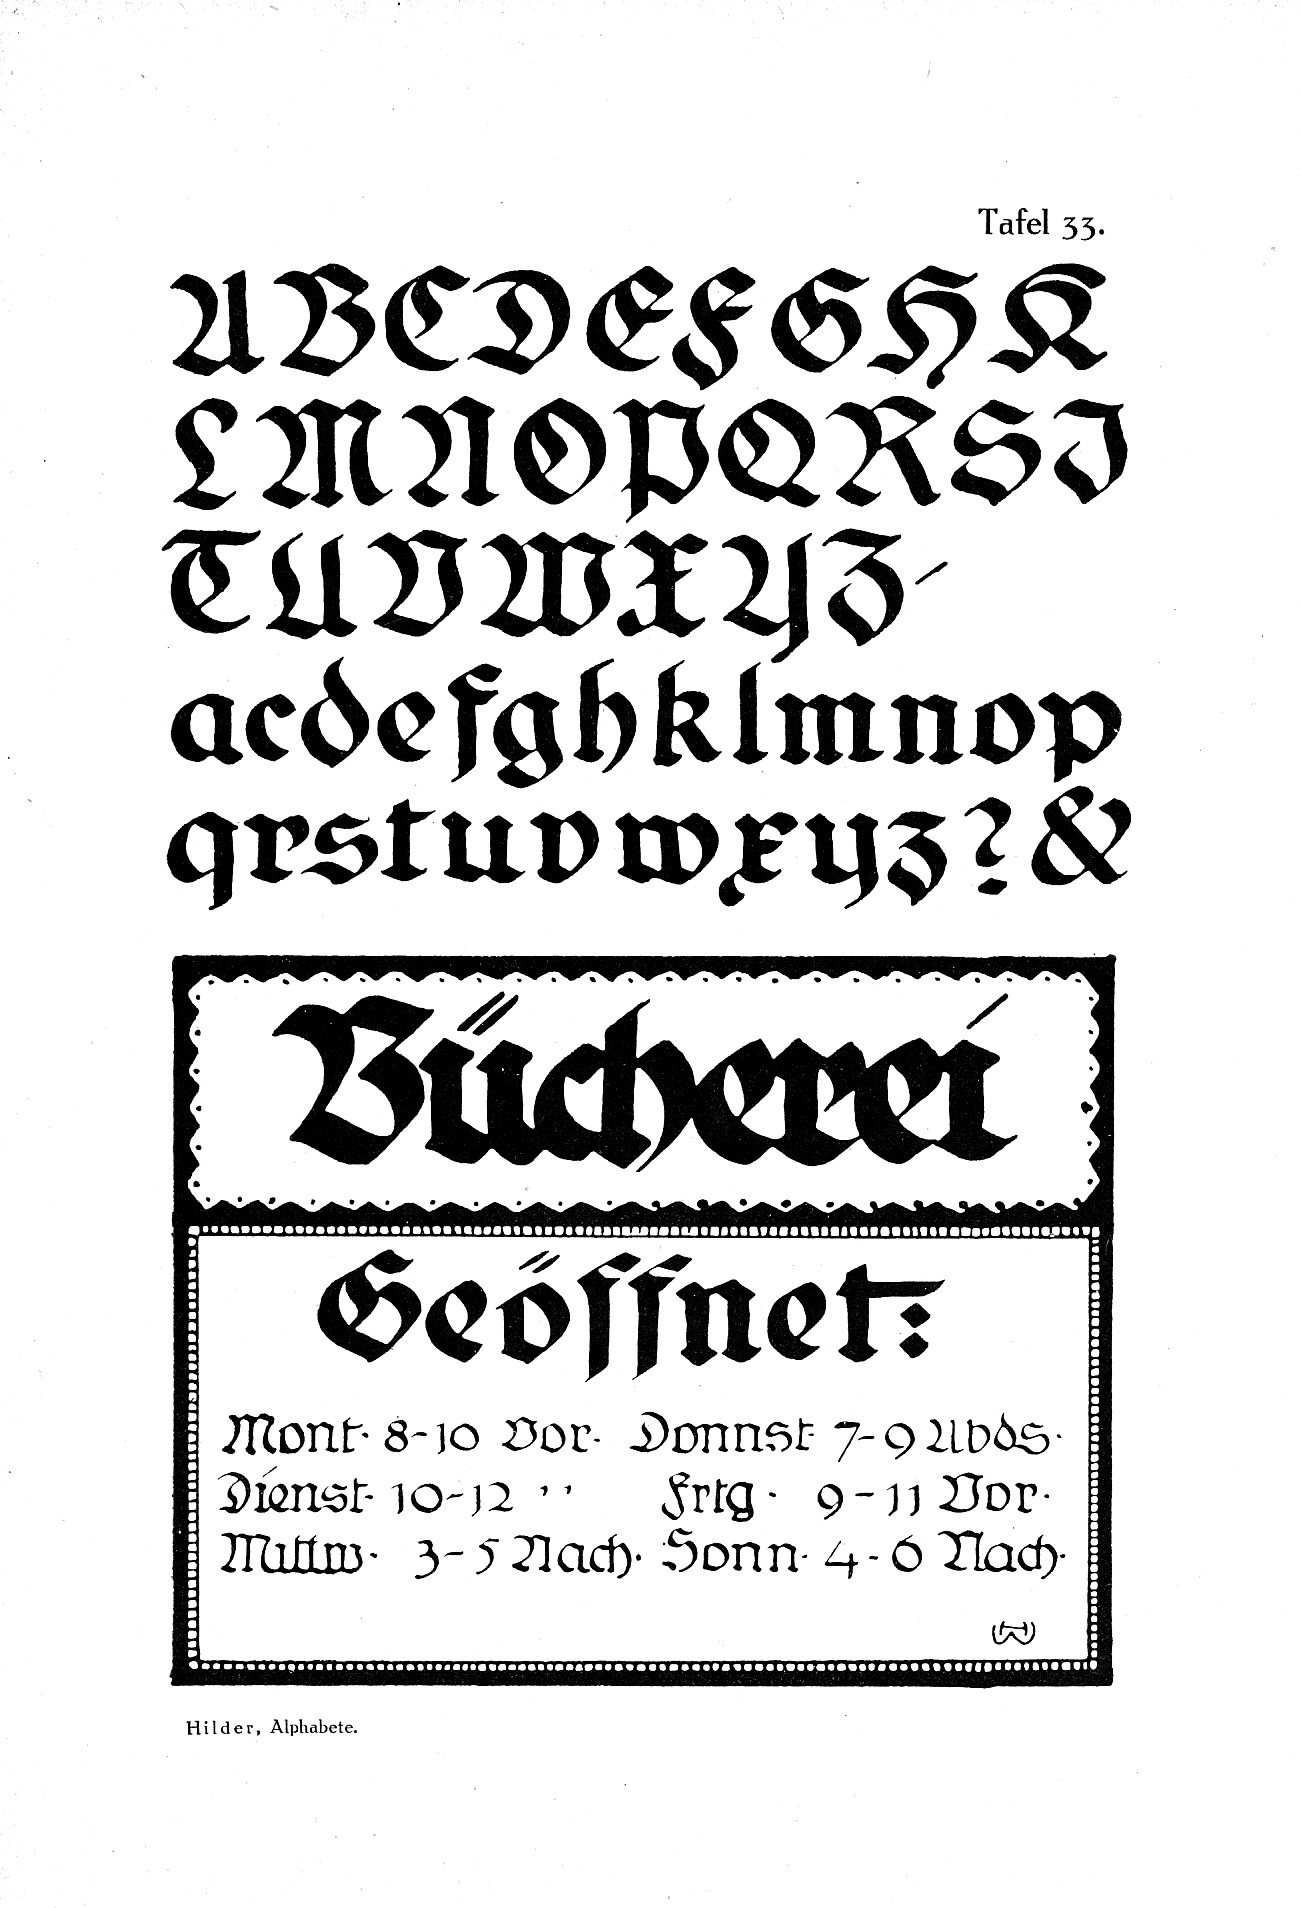 Tafel 33.
ABCDEFGHK
LMNOPQRSI
TUVWXYZ-
acdefghklmnop
qrstuvwxyz?&
Bücherei
Geöffnet:
Mont· 8-10 Vor· Donnst· 7-9 Abds·
Dienst· 10-12 '' Frtg· 9-11 Vor·
Mittw· 3-5 Nach· Sonn· 4-6 Nach·
Hilder, Alphabete.